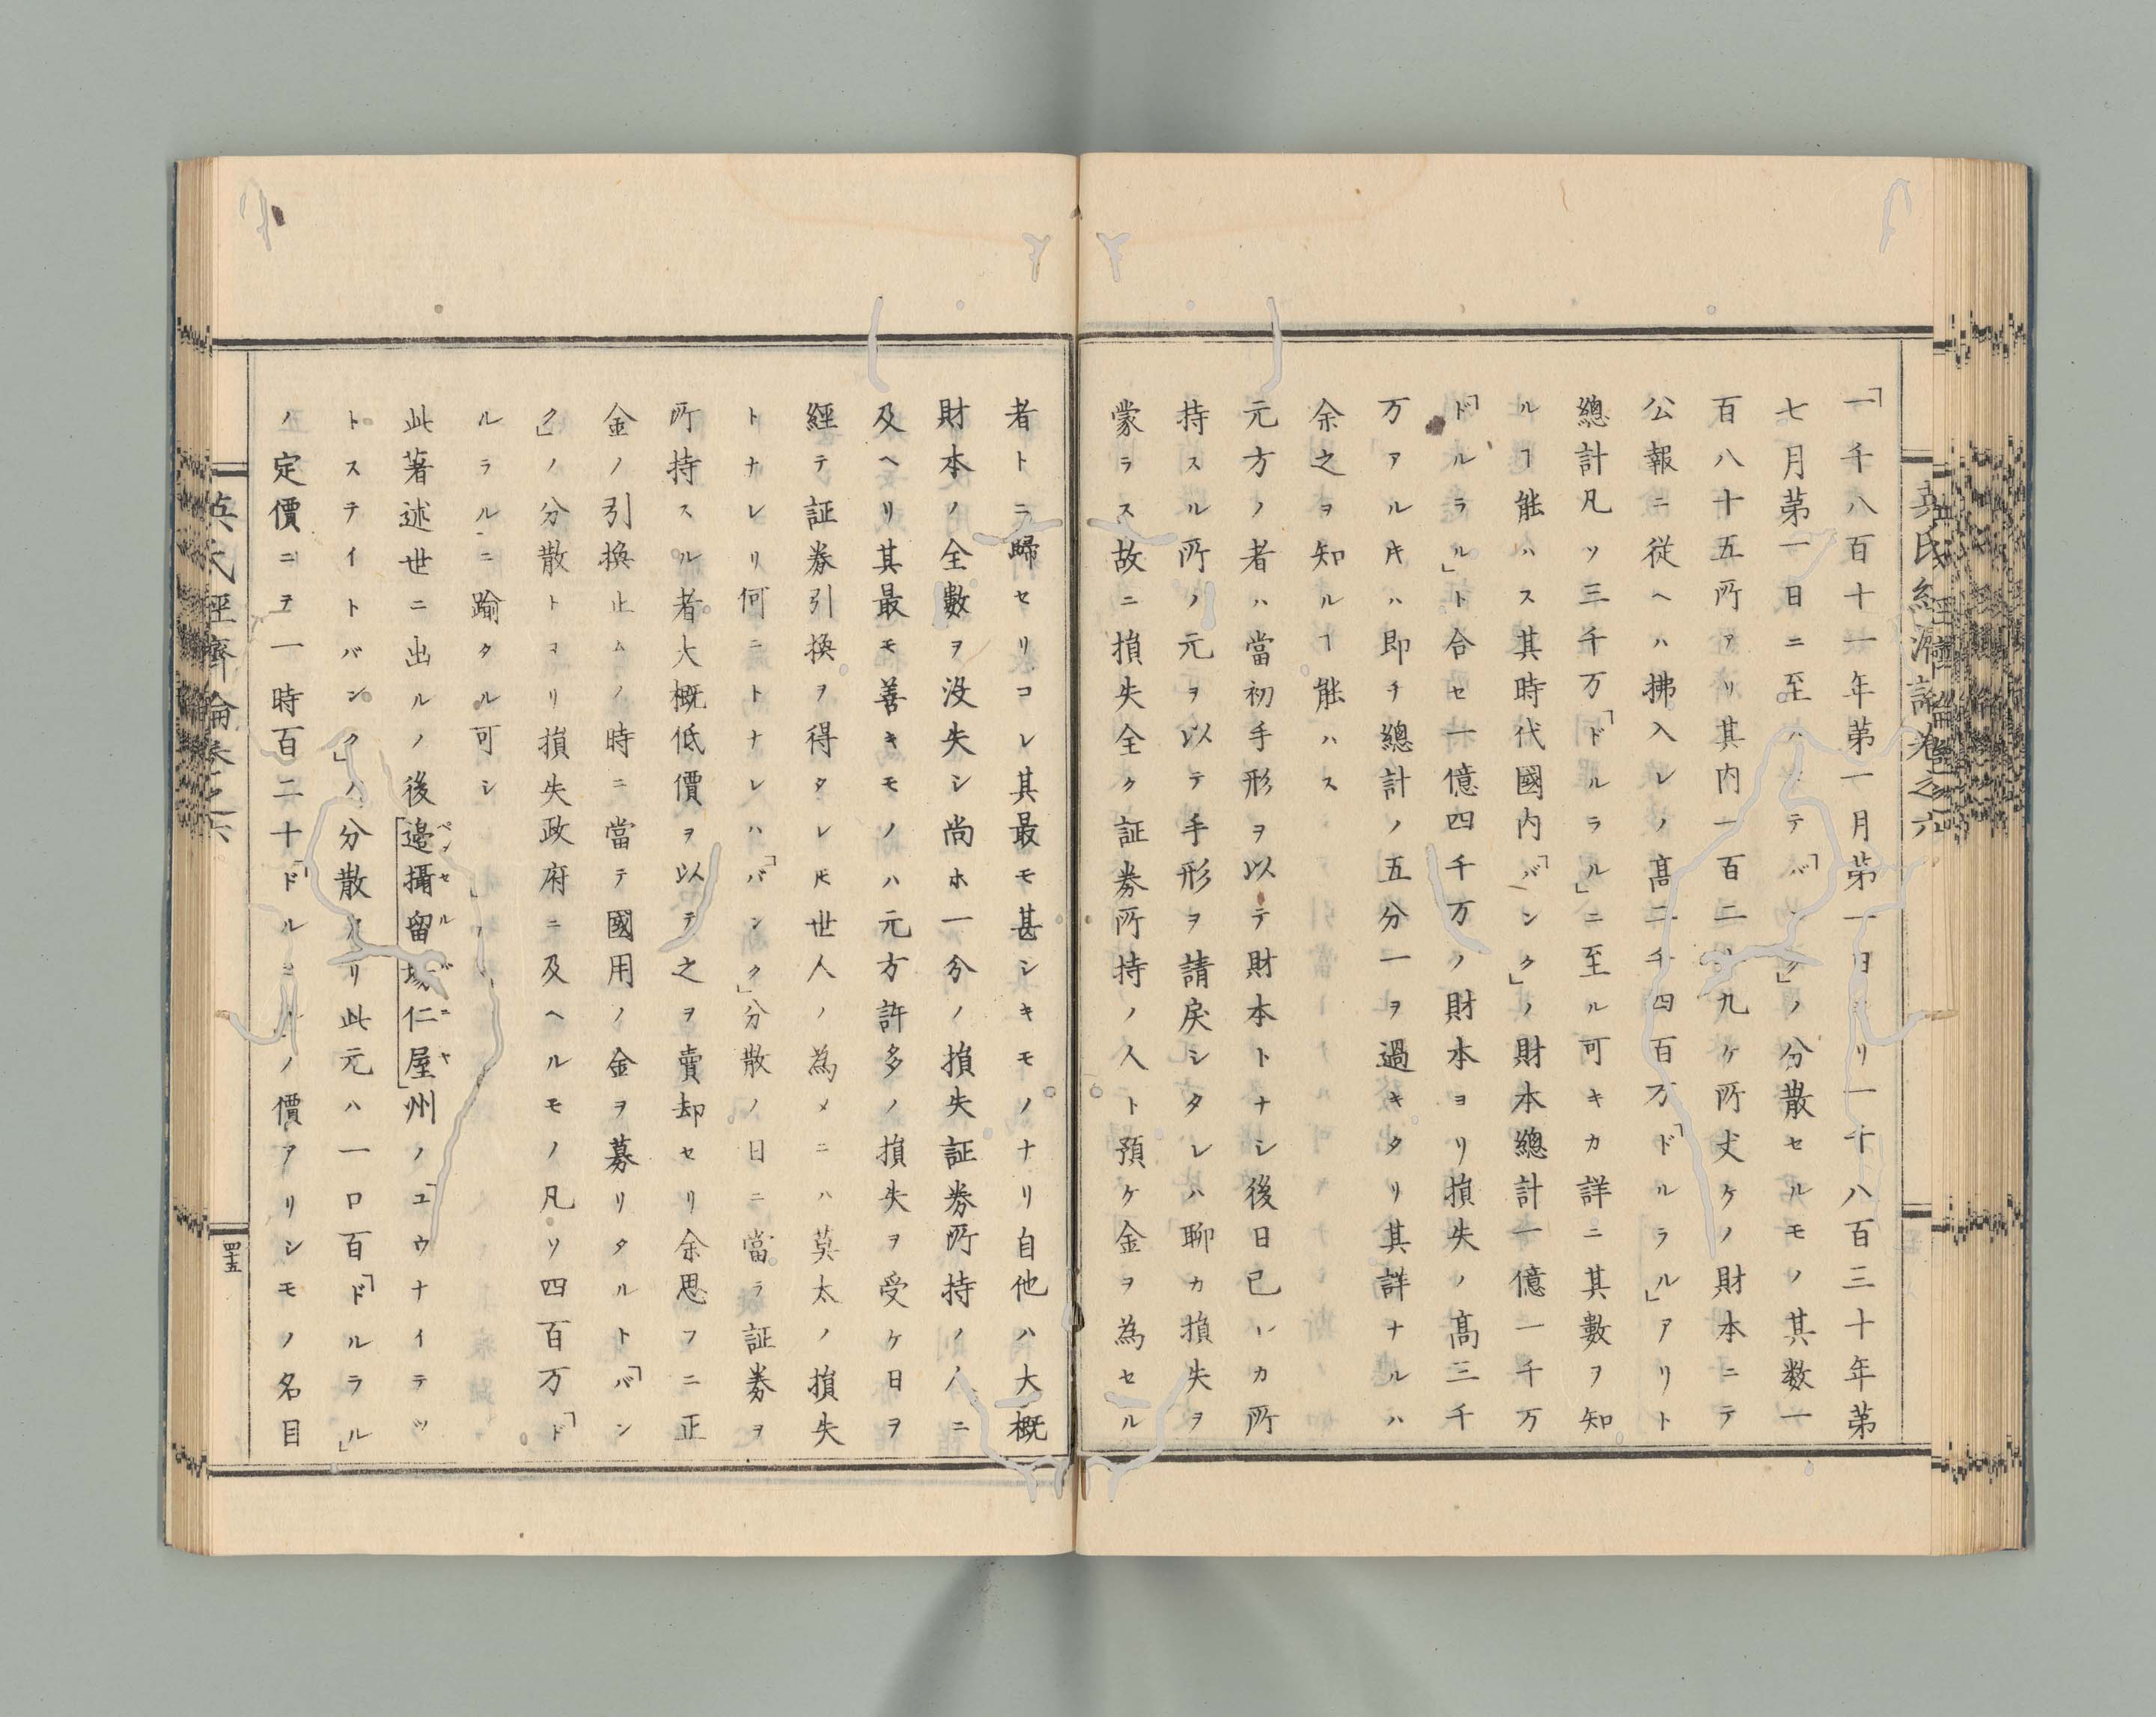 「一千八百十一年第一月第一日ヨリ一千八百三十年第
七月第一日ニ至ルマテ「バンク」ノ分散セルモノ其数一
百八十五所アリ其内一百二十九ケ所丈ケノ財本ニテ
公報ニ従ヘハ拂入レノ髙二千四百万「ドルラル」アリト
總計凡ソ三千万「ドルラル」ニ至ル可キカ詳ニ其數ヲ知
ルヿ能ハス其時代國内「バンク」ノ財本總計一億一千万
「ドルラル」ト合セ一億四千万ノ財本ヨリ損失ノ髙三千
万アル片ハ即チ總計ノ五分一ヲ過キタリ其詳ナルハ
余之ヲ知ルヿ能ハス
元方ノ者ハ當初手形ヲ以テ財本トナシ後日已レカ所
持スル所ノ元ヲ以テ手形ヲ請戻シタレハ聊カ損失ヲ
蒙ラス故ニ損失全ク証券所持ノ人ト預ケ金ヲ為セル
者トニ歸セリコレ其最モ甚シキモノナリ自他ハ大概
財本ノ全數ヲ沒失シ尚ホ一分ノ損失証券所持ノ人ニ
及ヘリ其最モ善キモノハ元方許多ノ損失ヲ受ケ日ヲ
經テ証券引換ヲ得タレ𪜈世人ノ為メニハ莫太ノ損失
トナレリ何ニトナレハ「バンク」分散ノ日ニ當ラ証券ヲ
所持スル者大概低價ヲ以テ之ヲ賣却セリ余思フニ正
金ノ引換止ムノ時ニ當テ國用ノ金ヲ募リタルト「バン
ク」ノ分散トヨリ損失政府ニ及ヘルモノ凡ソ四百万「ド
ルラル」ニ踰タル可シ
此著述世ニ出ルノ後邉攝留塲仁屋州ノ「ユウナイテツ
トステイトバンク」ハ分散セリ此元ハ一口百「ドルラル」
ノ定價ニテ一時百二十「ドルラル」ノ價アリシモノ名目
英氏經濟論卷之六
四十五